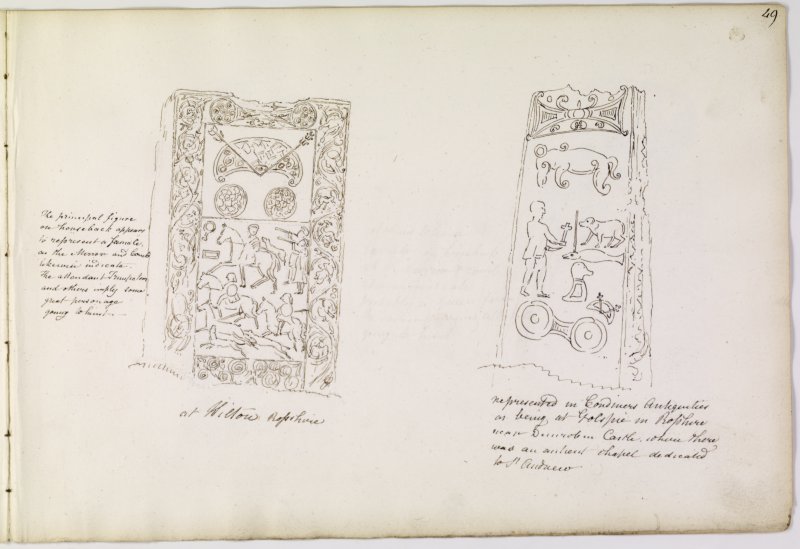 49
The principal figure
on horseback appears
to represent a female,
as the Mirror and Comb
likewise indicate.
The attendant Trumpeters
and others imply some
great personage
going to hunt.—
at Hilton Rossshire
represented in Cordiners Antiquities
as being at Golspie in Rossshire
near Dunrobin Castle. where there
was an antient chapel dedicated
to St Andrew